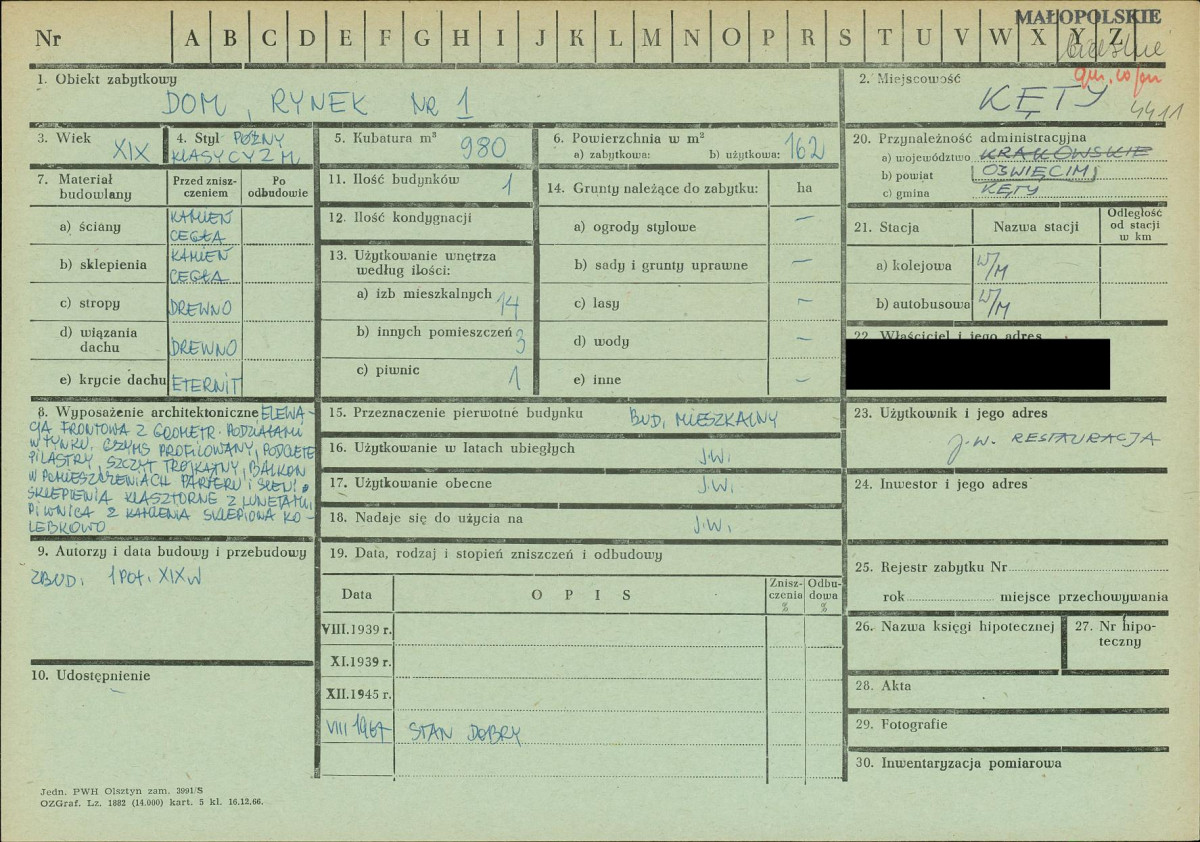 MAŁOPOLSKIE
Nr A B C D E F G H I J K L M N O P R S T U V W X Y Z
bielskie
1. Obiekt zabytkowy
DOM, RYNEK NR 1
2. Miejscowość
KĘTY
4411
3. Wiek XIX
4. Styl PÓŹNY
KLASYCYZM
5. Kubatura m³ 980
6. Powierzchnia w m²
a) zabytkowa: b) użytkowa: 162
7. Materiał
budowlany
Przed znisz-
czeniem
Po
odbudowie
a) ściany KAMIEŃ
CEGŁA
b) sklepienia KAMIEŃ
CEGŁA
c) stropy DREWNO
d) wiązania
dachu DREWNO
e) krycie dachu ETERNIT
8. Wyposażenie architektoniczne ELEWA-
CJA FRONTOWA Z GEOMETR. PODZIAŁAMI
W TYNKU. GZYMS PROFILOWANY, PODCIĘTE
PILASTRY, SZCZYT TRÓJKĄTNY, BALKON
W POMIESZCZENIACH PARTERU I SIENI
SKLEPIENIA KLASZTORNE Z LUNETAMI,
PIWNICA Z KAMIENIA SKLEPIONA KO-
LEBKOWO
9. Autorzy i data budowy i przebudowy
ZBUD. 1 POŁ. XIX W
10. Udostępnienie
–
11. Ilość budynków 1
12. Ilość kondygnacji
13. Użytkowanie wnętrza
według ilości:
a) izb mieszkalnych 14
b) innych pomieszczeń 3
c) piwnic 1
14. Grunty należące do zabytku: ha
a) ogrody stylowe –
b) sady i grunty uprawne –
c) lasy –
d) wody –
e) inne –
15. Przeznaczenie pierwotne budynku BUD. MIESZKALNY
16. Użytkowanie w latach ubiegłych J.W.
17. Użytkowanie obecne J.W.
18. Nadaje się do użycia na J.W.
19. Data, rodzaj i stopień zniszczeń i odbudowy
Data OPIS Znisz-
czenia
% Odbu-
dowa
%
VIII.1939 r.
XI.1939 r.
XII.1945 r.
VIII 1967 STAN DOBRY
20. Przynależność administracyjna
a) województwo KRAKOWSKIE
b) powiat OŚWIĘCIM
c) gmina KĘTY
21. Stacja Nazwa stacji Odległość
od stacji
w km
a) kolejowa W/M
b) autobusowa W/M
22. Właściciel i jego adres
23. Użytkownik i jego adres
J.W. RESTAURACJA
24. Inwestor i jego adres
25. Rejestr zabytku Nr
rok miejsce przechowywania
26. Nazwa księgi hipotecznej
27. Nr hipo-
teczny
28. Akta
29. Fotografie
30. Inwentaryzacja pomiarowa
Jedn. PWH Olsztyn zam. 3991/S
OZGraf. Lz. 1882 (14.000) kart. 5 kl. 16.12.66.